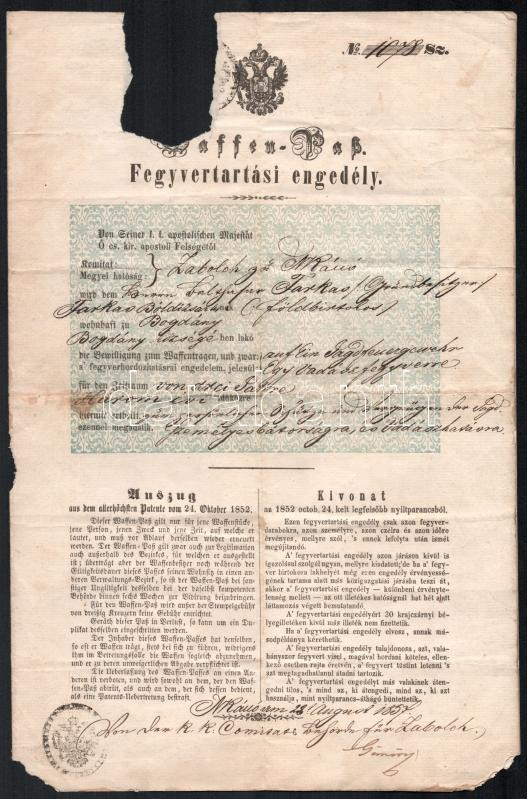 № 1078 Sz.
Waffen-Paß.
Fegyvertartási engedély.
Von Seiner k. k. apostolischen Majestät
Ő cs. kir. apostoli Felségétől
Komitat:
Megyei hatóság
wird dem Herrn Farkas Grundbesitzer
Farkas (földbirtokos)
wohnhaft zu Bogdány
Bogdány ben lakó
die Bewilligung zum Waffentragen, und zwar: auf Ein Jagdfeuergewehr
a' fegyverhordozhatásrai engedelem, jelesül Egy vadászfegyverre
für den Zeitraum von drei Jahre
Három évi időkorre
hiermit ertheilt, zur persönlicher und der Jagd.
ezennel megadatik. személyes bátorságra, és vadászhatásra
Auszug
aus dem allerhöchsten Patente vom 24. Oktober 1852.
Dieser Waffen-Paß gilt nur für jene Waffenstücke,
jene Person, jenen Zweck und jene Zeit, auf welche er
lautet, und muß vor Ablauf derselben wieder erneuert
werden. Der Waffen-Paß gilt zwar auch zur Legitimation
auch außerhalb des Bezirks, für welchen er ausgestellt
ist; überträgt aber der Waffenbesitzer noch während der
Giltigkeitsdauer dieses seinen Wohnsitz in einen an-
deren Verwaltungs-Bezirk, so ist der Waffen-Paß bei son-
stiger Ungiltigkeit desselben bei der daselbst kompetenten
Behörde binnen acht Tagen zur Vidirung beizubringen.
Für den Waffen-Paß wird außer der Stempelgebühr
von dreißig Kreuzer keine Gebühr entrichtet.
Geräth dieser Paß in Verlust, so kann um ein Du-
plikat desselben eingeschritten werden.
Der Inhaber dieses Waffen-Passes hat denselben,
so oft er Waffen trägt, stets bei sich zu führen, widrigens
ihm im Betretungsfalle die Waffen sogleich abgenommen,
und er zu deren unweigerlichen Abgabe verpflichtet ist.
Die Ueberlassung des Waffen-Passes an einen Ande-
ren ist verboten, und wird sowohl an dem, der den Waf-
fen-Paß abtritt, als auch an dem, der sich dessen bedient,
als eine Patents-Uebertretung bestraft.
Kivonat
az 1852 octob. 24. kelt legfelsőbb nyiltparancsból.
Ezen fegyvertartási engedély csak azon fegyver-
darabokra, azon személyre, azon czélra és azon időre
érvényes, mellyre szól, 's ennek lefolyta után ismét
megújitandó.
A' fegyvertartási engedély azon járáson kivül is
igazolásul szolgálugyan, mellyre kiadatott; de ha a' fegy-
ver birtokos lakhelyét még ezen engedély érvényessé-
gének tartama alatt más közigazgatási járásba teszi át,
akkor a' fegyvertartási engedély — különben érvényte-
lenség mellett — az ott illetékes hatóságnál hat hét alatt
láttamozás végett bemutatandó.
A' fegyvertartási engedélyért 30 krajczárnyi bé-
lyegilletéken kivül más illeték nem fizettetik.
Ha a' fegyvertartási engedély elvesz, annak má-
sodpéldánya kérethetik.
A' fegyvertartási engedély tulajdonosa, azt, vala-
hányszor fegyvert visel, magával hordani köteles, ellen-
kező esetben rajta éretvén, a' fegyvert tüstint letenni 's
azt megtagadhatlanul átadni tartozik.
A' fegyvertartási engedélyt más valakinek áten-
gedni tilos, 's mind az, ki átengedi, mind az, ki azt
használja, mint nyiltparancs-áthágó büntettetik.
NKálló am 28 August 1857
Von der K. K. Comitats Behörde für Zabolch.